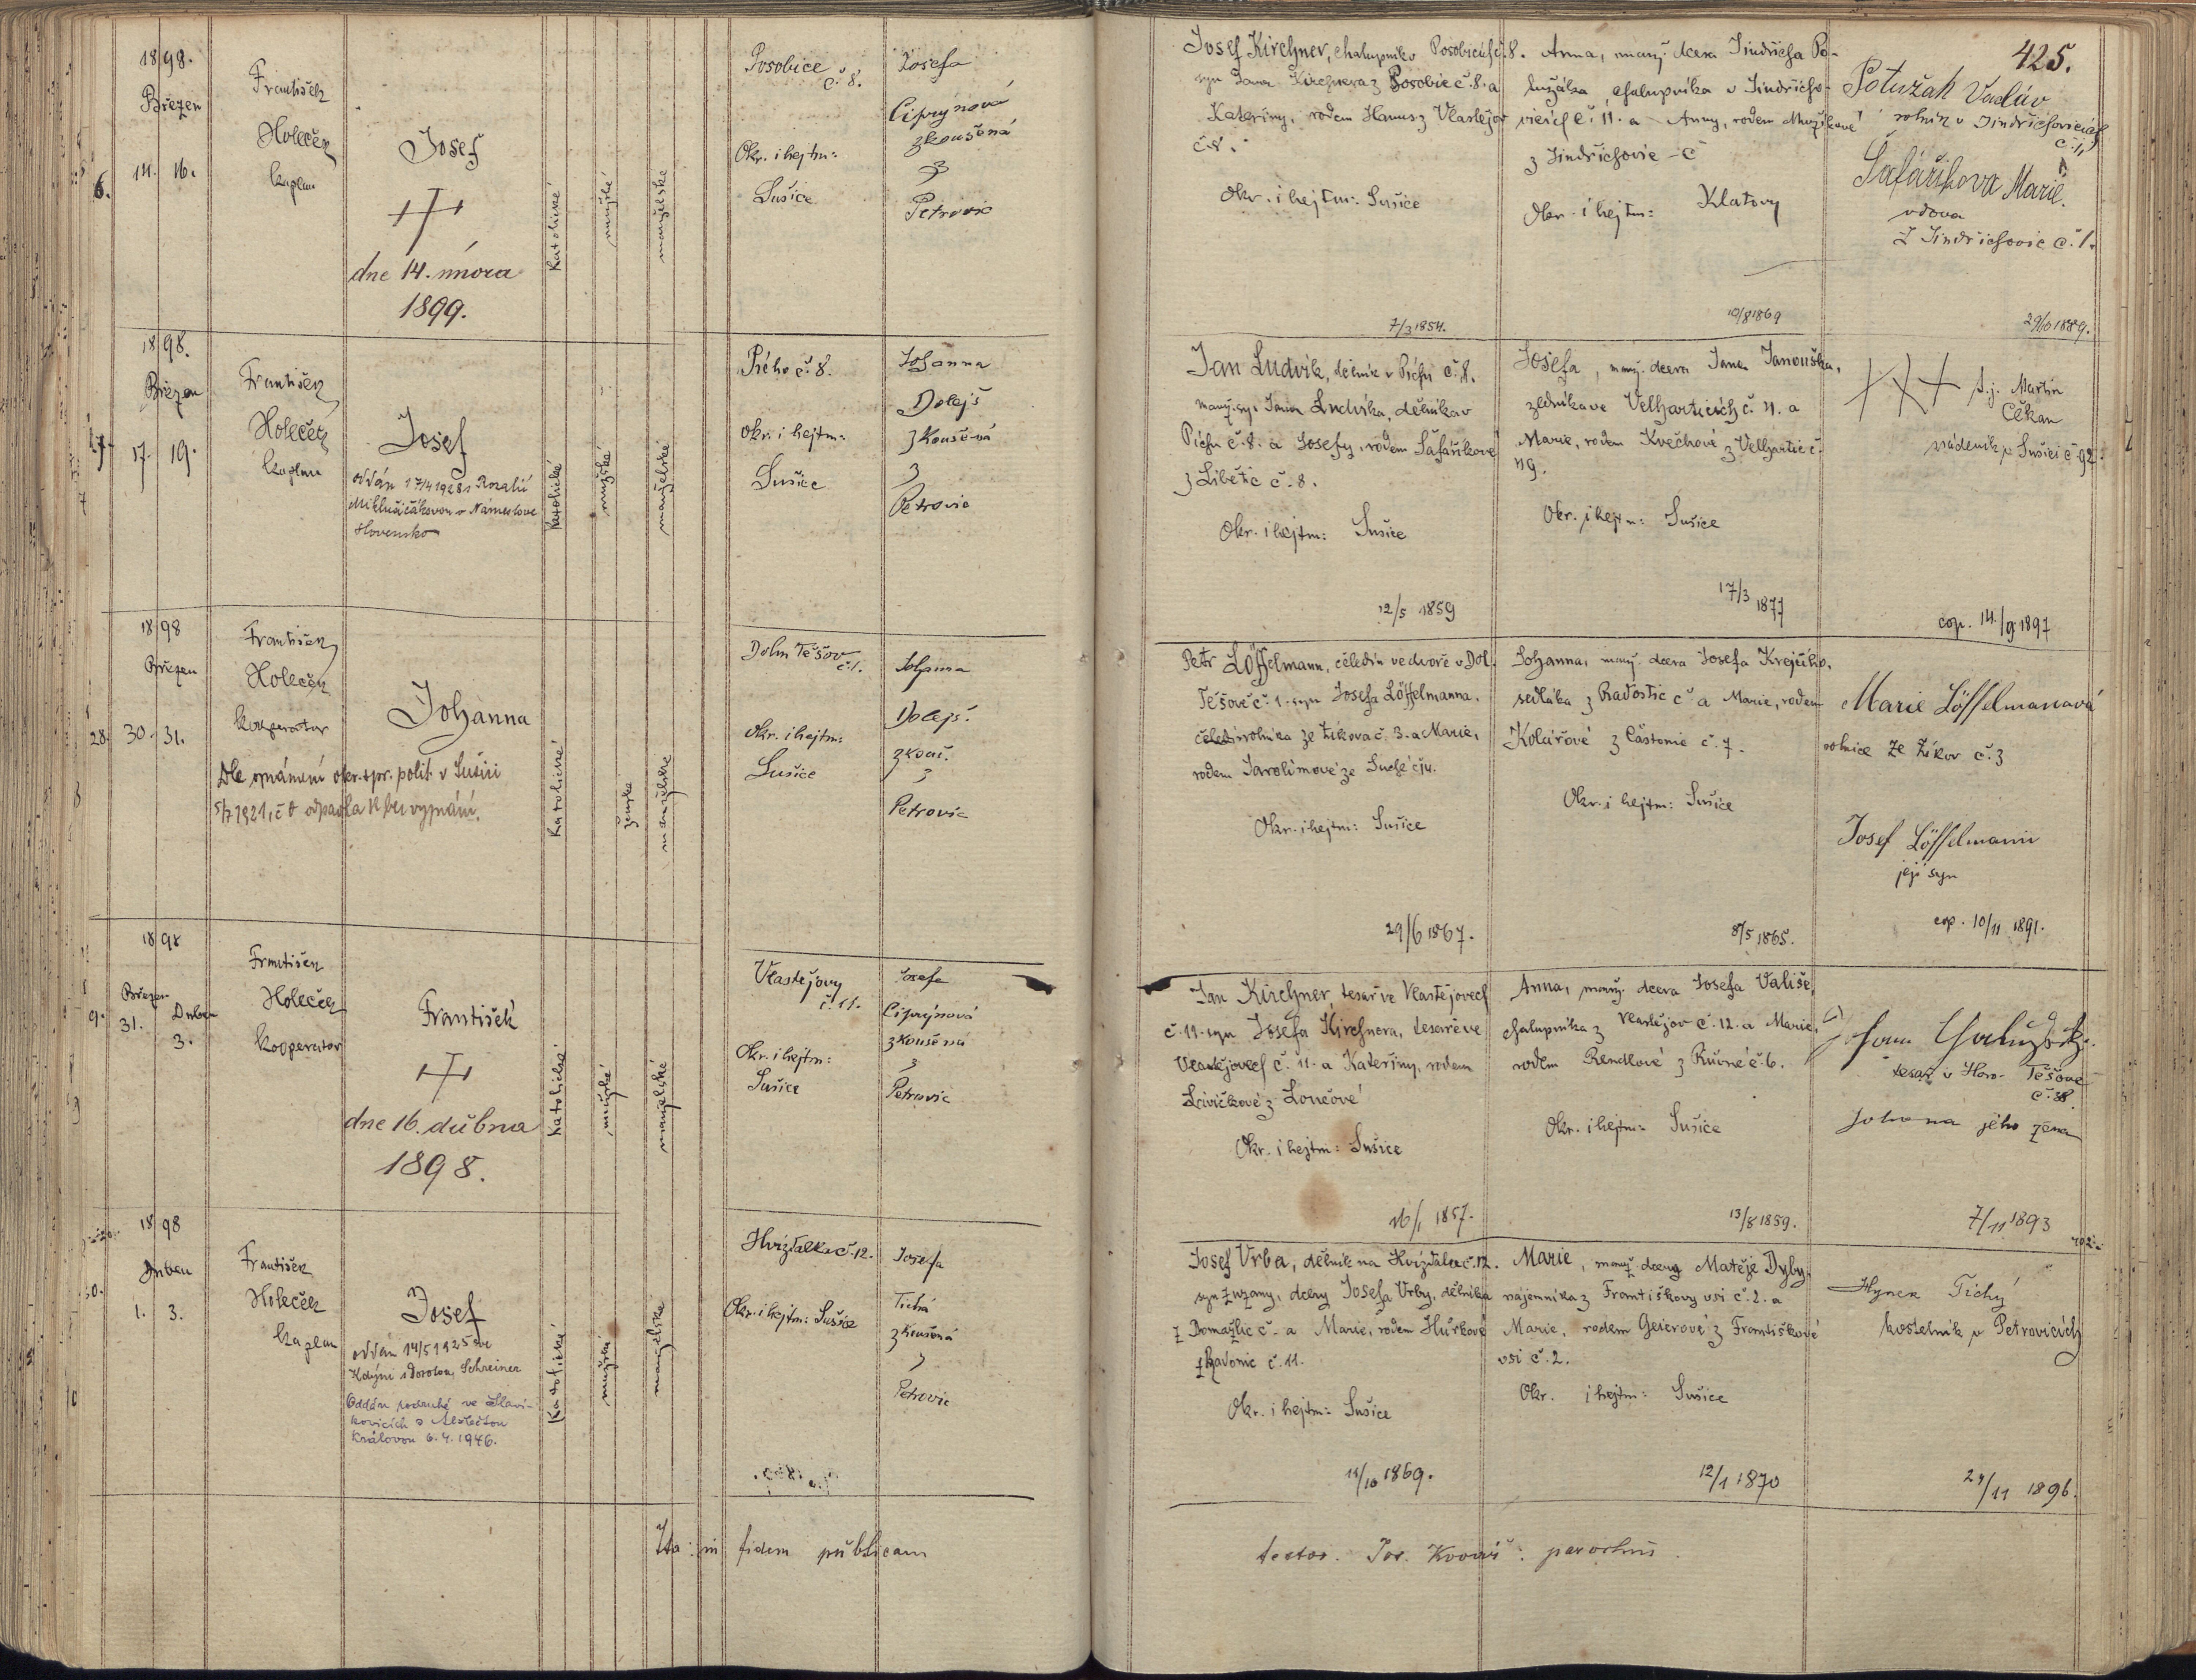 425.
1898.
Březen
14. 16.
6.
František
Holeček
kaplan
Josef
dne 14. února
1899.
katolické
mužské
manželské
Posobice
č. 8.
Okr. i hejtm:
Sušice
Josefa
Ciprýnová
zkoušená
z
Petrovic
Josef Kirchner, chalupník v Posobicích č. 8.
syn Jana Kirchnera z Posobic č. 8. a
Kateřiny, rodem Hanus z Vlastějov
č. 8.
Okr. i hejtm: Sušice
7/3 1854.
Anna, manž. dcera Jindřicha Po-
lužáka, chalupníka v Jindřicho-
vicích č. 11. a Anny, rodem
z Jindřichovic č
Okr. i hejtm: Klatovy
10/8 1869
Potužák Vacláv
rolník v Jindřichovicích
č. 11
Šafaříkova Marie.
vdova
z Jindřichovic č. 1.
1898.
Březen
17. 19.
František
Holeček
kaplan
Josef
oddán 17/4 1928 s Rozalií
v Namestove
Slovensko
katolické
mužské
manželské
Pícho č. 8.
Okr. i hejtm:
Sušice
Johanna
Dolejš
zkoušená
z
Petrovic
Jan Ludvík, dělník v Píchu č. 8.
manž. syn Jana Ludvíka, dělníka v
Píchu č. 8. a Josefy, rodem Šafaříkové
z Libětic č. 8.
Okr. i hejtm: Sušice
12/5 1859
Josefa, manž. dcera Jana Janouška,
zedníka ve Velharticích č. 11. a
Marie, rodem Květhové z Velhartic č.
119.
Okr. i hejtm: Sušice
17/3 1877
+++ t. j. Martin
Čekan
nádeník v Sušici č. 92.
cop. 14./9 1897
1898
Březen
28. 30. 31.
František
Holeček
kooperator
Dle oznámení okr. spr. polit. v Sušici
5/7 1921, č odpadla k bez vyznání.
Johanna
katolické
ženské
manželské
Doln Těšov
č. 1.
Okr. i hejtm:
Sušice
Johanna
Dolejš.
zkouš.
z
Petrovic
Petr Löffelmann, čeledín ve dvoře v Dol.
Těšově č. 1. syn Josefa Löffelmanna,
rolníka ze Žikova č. 3. a Marie,
rodem Jarolímové ze Suché č 14.
Okr. i hejtm: Sušice
29/6 1867.
Johanna, manž. dcera Josefa Krejčího,
sedláka z Radostic č a Marie, rodem
Kolářové z Častonic č. 7.
Okr. i hejtm: Sušice
8/5 1865.
Marie Löffelmanová
rolnice ze Žikov č. 3
Josef Löffelmann
její syn
cop. 10/11 1891.
1898
Březen
31.
Duben
3.
9.
František
Holeček
kooperator
František
dne 16. dubna
1898.
katolické
mužské
manželské
Vlastějovy
č. 11.
Okr. i hejtm:
Sušice
Josefa
Ciprýnová
zkoušená
z
Petrovic
Jan Kirchner, tesař ve Vlastějovech
č. 11. syn Josefa Kirchnera, tesaře ve
Vlastějovech č. 11. a Kateřiny, rodem
z Loučové
Okr. i hejtm: Sušice
16/1 1857.
Anna, manž. dcera Josefa Vališe,
chalupníka z Vlastějov č. 12. a Marie,
rodem Rendlové z Růvné č. 6.
Okr. i hejtm: Sušice
13/8 1859.
tesař v Hor. Těšově
č. 38.
Johana jeho žena
7/11 1893
1898
Duben
1. 3.
František
Holeček
kaplan
Josef
oddán 14/5 1925 ve
Kdýni s Dorotou Schreiner
Oddán podruhé ve Slavi-
kovicích s Alžbětou
Královou 6. 4. 1946.
katolické
mužské
manželské
Hvízdalka č. 12.
Okr. i hejtm: Sušice
Josefa
Tichá
zkoušená
z
Petrovic
Josef Vrba, dělník na Hvízdalce č. 12.
syn Zuzany, dcery Josefa Vrby, dělníka
z Domažlic č. a Marie, rodem Hůrkové
z Radonic č. 11.
Okr. i hejtm: Sušice
11/10 1869.
Marie, manž. dcery Matěje Dyby,
nájemníka z Františkovy vsi č. 2. a
Marie, rodem Geierové z Františkové
vsi č. 2.
Okr. i hejtm: Sušice
12/1 1870
Hynek Tichý
kostelník v Petrovicích
24/11 1896.
Ita in fidem publicam
testor. Jos. Kovář: parochus